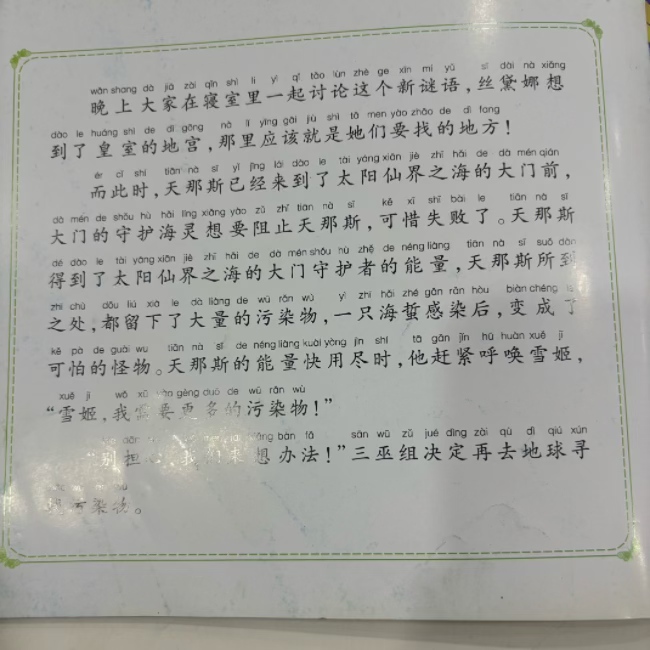 wǎn shang dà jiā zài qǐn shì li yì qǐ tǎo lùn zhè ge xīn mí yǔ sī dài nà xiǎng
晚上大家在寝室里一起讨论这个新谜语,丝黛娜想
dào le huáng shì de dì gōng nà lǐ yīng gāi jiù shì tā men yào zhǎo de dì fang
到了皇室的地宫,那里应该就是她们要找的地方!
ér cǐ shí tiān nà sī yǐ jīng lái dào le tài yáng xiān jiè zhī hǎi de dà mén qián
而此时,天那斯已经来到了太阳仙界之海的大门前,
dà mén de shǒu hù hǎi líng xiǎng yào zǔ zhǐ tiān nà sī kě xī shī bài le tiān nà sī
大门的守护海灵想要阻止天那斯,可惜失败了。天那斯
dé dào le tài yáng xiān jiè zhī hǎi de dà mén shǒu hù zhě de néng liàng tiān nà sī suǒ dào
得到了太阳仙界之海的大门守护者的能量,天那斯所到
zhī chù dōu liú xià le dà liàng de wū rǎn wù yì zhī hǎi zhé gǎn rǎn hòu biàn chéng le
之处,都留下了大量的污染物,一只海蜇感染后,变成了
kě pà de guài wu tiān nà sī de néng liàng kuài yòng jìn shí tā gǎn jǐn hū huàn xuě jī
可怕的怪物。天那斯的能量快用尽时,他赶紧呼唤雪姬,
xuě jī wǒ xū yào gèng duō de wū rǎn wù
“雪姬,我需要更多的污染物!”
bàn fǎ sān wū zǔ jué dìng zài qù dì qiú xún
别担心,我们来想办法!”三巫组决定再去地球寻
找污染物。